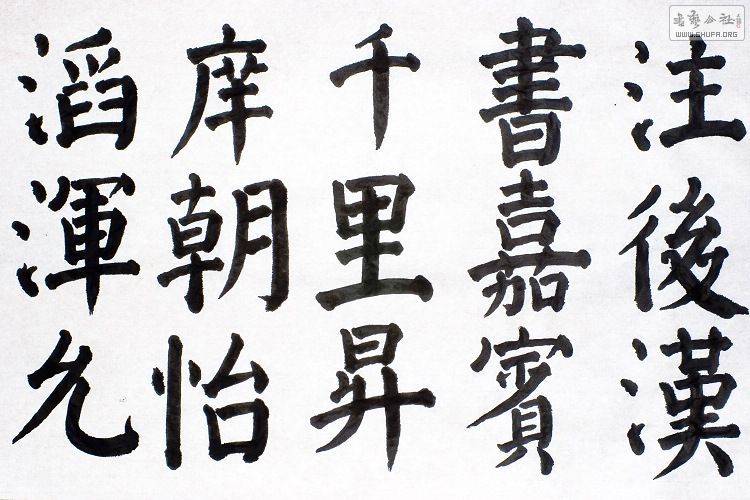 注後漢
書嘉賓
千里昇
庠朝怡
滔渾允
书艺公社
WWW.SHUFA.ORG